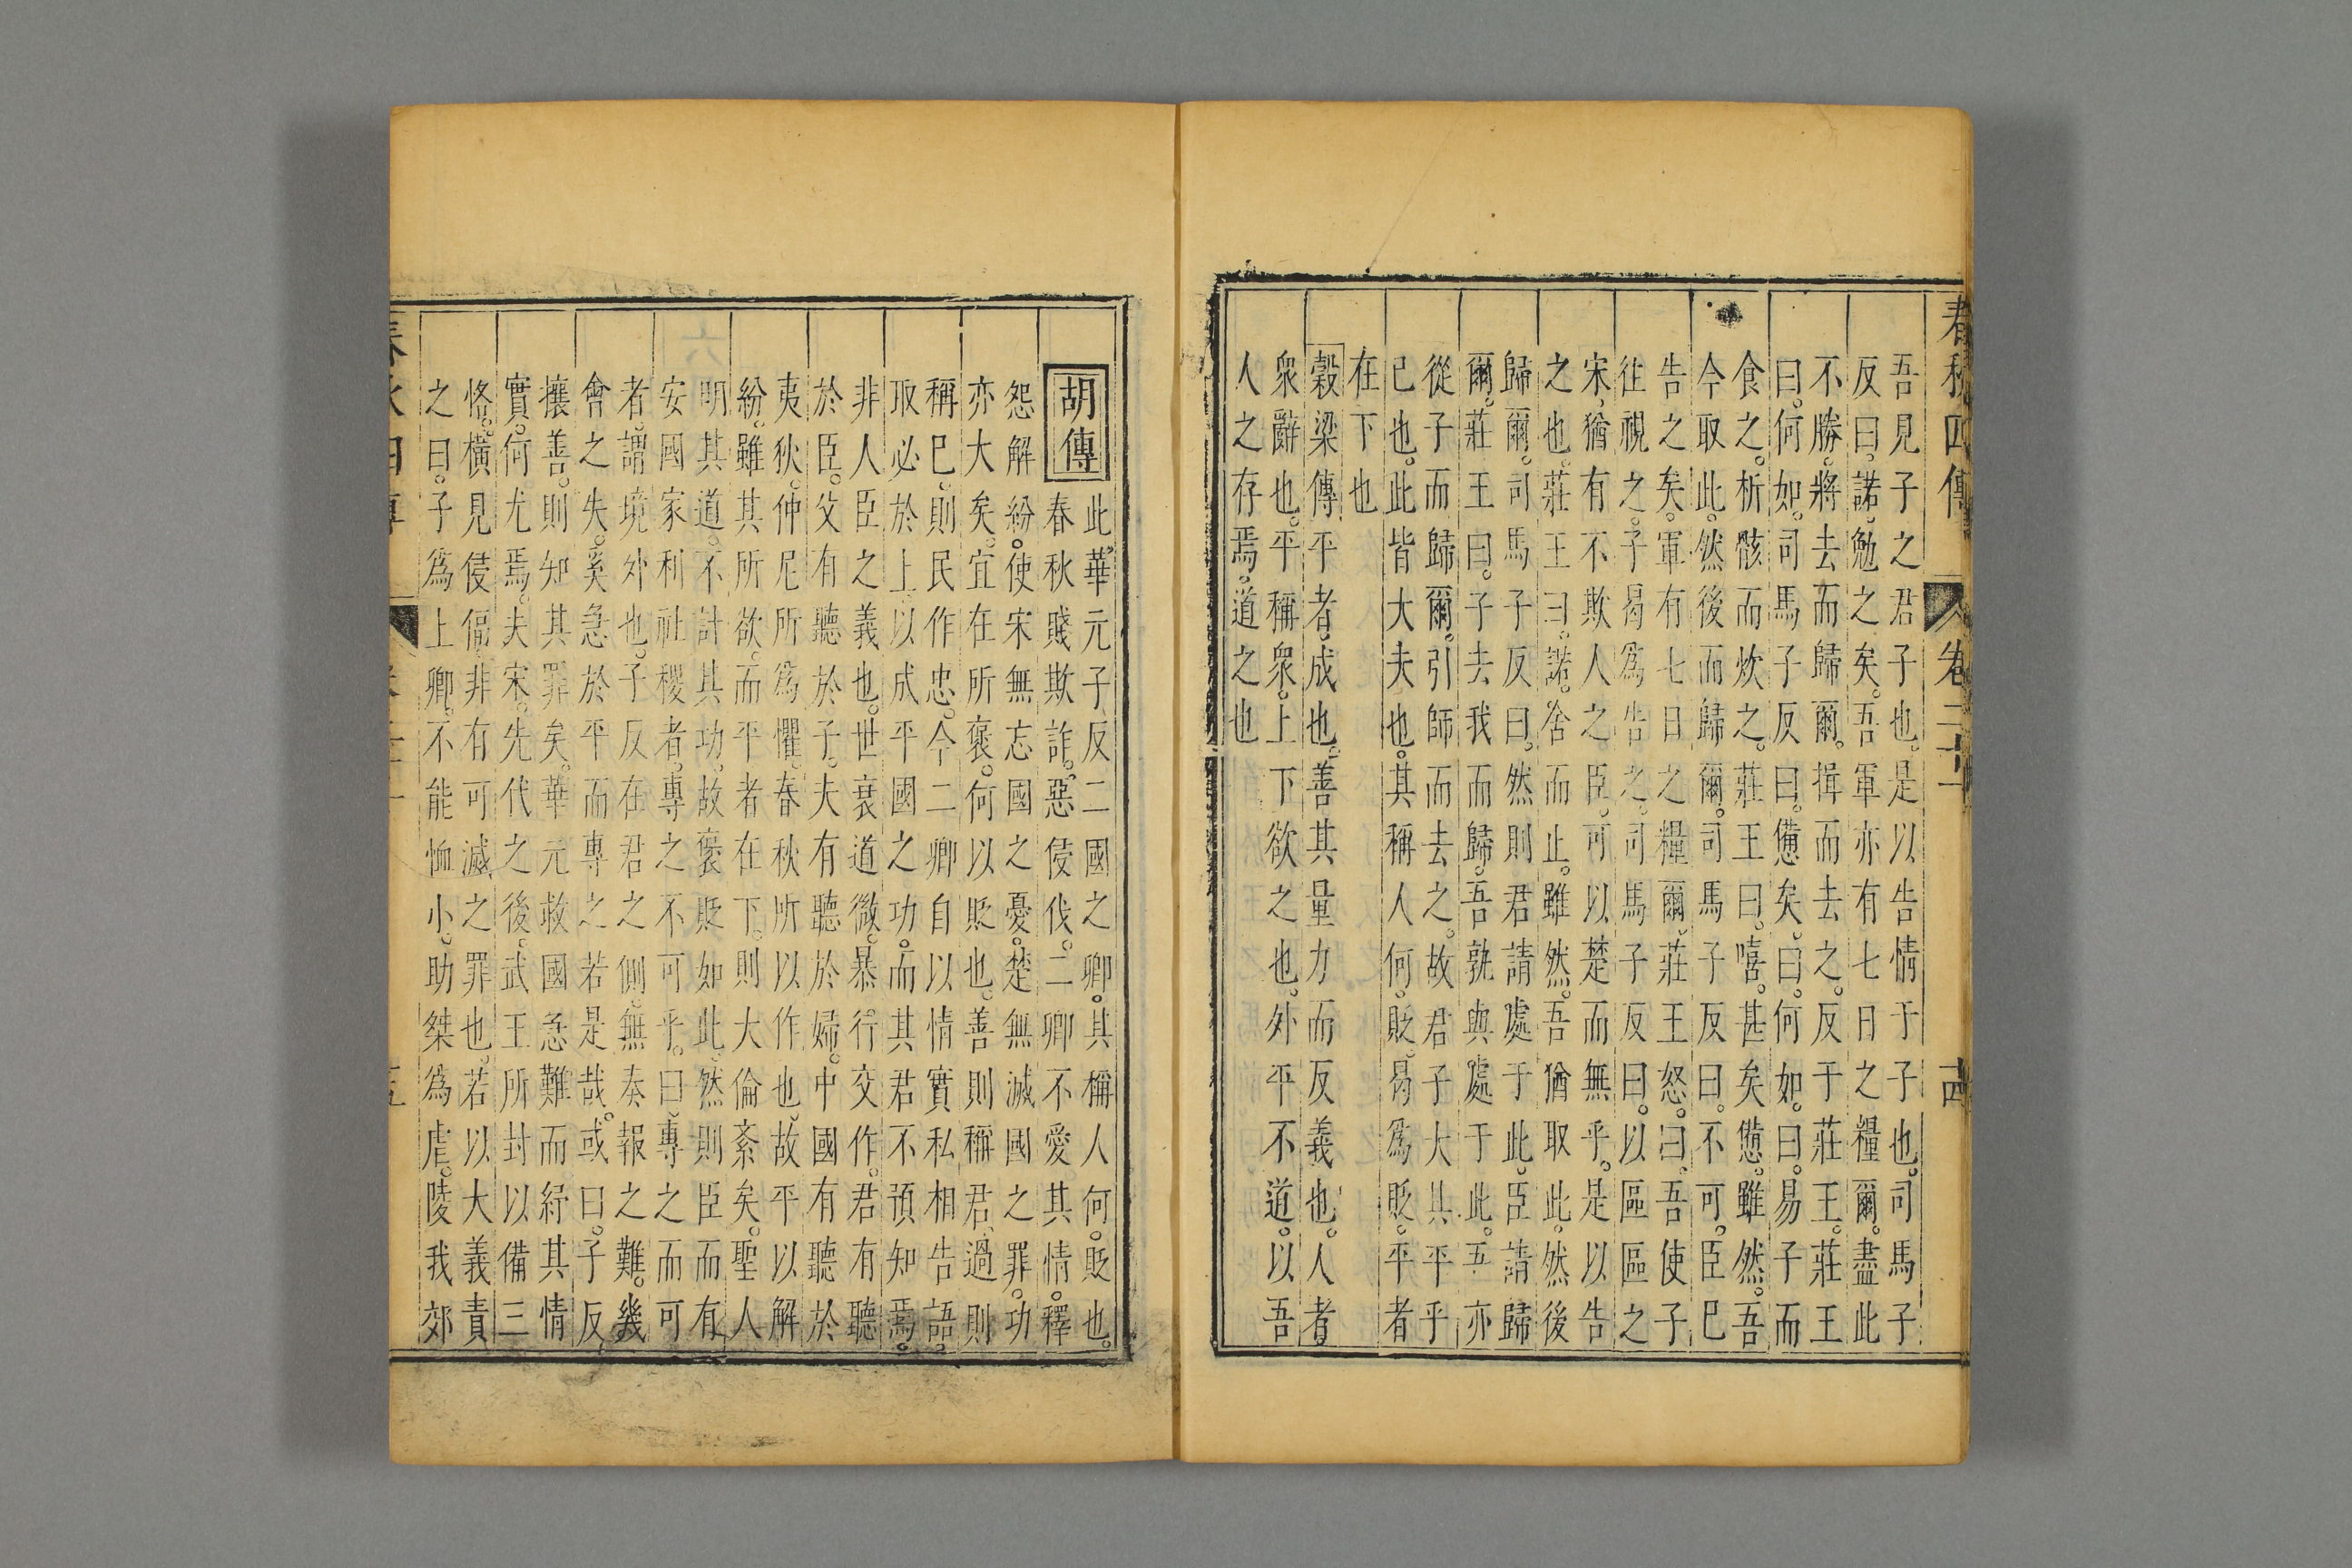 春秋四傳 卷二十一 十四
吾見子之君子也是以告情于子也司馬子
反曰諾勉之矣吾軍亦有七日之糧爾盡此
不勝將去而歸爾揖而去之反于莊王莊王
曰何如司馬子反曰憊矣曰何如曰易子而
食之析骸而炊之莊王曰嘻甚矣憊雖然吾
今取此然後而歸爾司馬子反曰不可臣已
告之矣軍有七日之糧爾莊王怒曰吾使子
往視之子曷爲告之司馬子反曰以區區之
宋猶有不欺人之臣可以楚而無乎是以告
之也莊王曰諾舍而止雖然吾猶取此然後
歸爾司馬子反曰然則君請處于此臣請歸
爾莊王曰子去我而歸吾孰與處于此吾亦
從子而歸爾引師而去之故君子大其平乎
已也此皆大夫也其稱人何貶曷爲貶平者
在下也
穀梁傳平者成也善其量力而反義也人者
衆辭也平稱衆上下欲之也外平不道以吾
人之存焉道之也
此華元子反二國之卿其稱人何貶也
胡傳春秋賤欺詐惡侵伐二卿不愛其情釋
怨解紛使宋無忘國之憂楚無滅國之罪功
亦大矣宜在所褒何以貶也善則稱君過則
稱已則民作忠今二卿自以情實私相告語
取必於上以成平國之功而其君不預知焉
非人臣之義也世衰道微暴行交作君有聽
於臣父有聽於子夫有聽於婦中國有聽於
夷狄仲尼所爲懼春秋所以作也故平以解
紛雖其所欲而平者在下則大倫紊矣聖人
明其道不計其功故褒貶如此然則臣而有
安國家利社稷者專之不可乎曰專之而可
者謂境外也子反在君之側無奏報之難幾
會之失奚急於平而專之若是哉或曰子反
攘善則知其罪矣華元救國急難而紓其情
實何尤焉夫宋先代之後武王所封以備三
恪橫見侵偪非有可滅之罪也若以大義責
之曰子爲上卿不能恤小助桀爲虐陵我郊